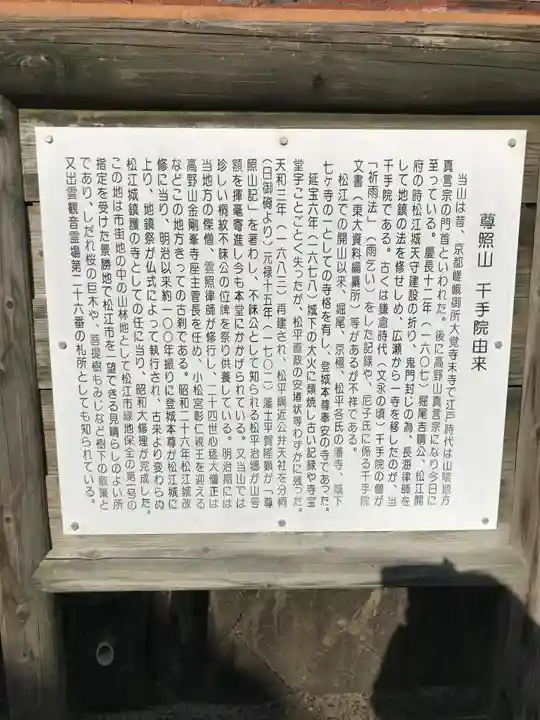 尊照山　千手院由来
当山は昔、京都嵯峨御所大覚寺末寺で江戸時代は山陰地方
真言宗の門首といわれた。後に高野山真言宗になり今日に
至っている。慶長十二年（一六〇七）堀尾吉晴公、松江開
府の時松江城天守建設の折り、鬼門封じの為、長海律師を
して地鎮の法を修せしめ、広瀬から一寺を移したのが、当
千手院である。古くは鎌倉時代（文永の頃）千手院の僧が
「祈雨法」（雨乞い）をした記録や、尼子氏に係る千手院
文書（東大資料編纂所）等があるが不祥である。
松江での開山以来、堀尾、京極、松平各氏の藩寺、城下
七ヶ寺の一としての寺格を有し、登城本尊奉安の寺であった。
延宝六年（一六七八）城下の大火に類焼し古い記録や寺宝
堂宇ことごとく失ったが、松平直政の安堵状等わずかに残った。
天和三年（一六八三）再建され、松平綱近公弁天社を分祠
（日御碕より）元禄十五年（一七〇二）藩士平賀隆顕が「尊
照山記」を著わし、不昧公として知られる松平治郷が山号
額を揮毫寄進し今も本堂にかかげられている。又当山では
珍しい桐紋不昧公の位牌を祭り供養している。明治期には
当地方の傑僧、雲照律師が修行し、二十四世心猛大僧正は
高野山金剛峯寺座主管長を任め、小松宮彰仁親王を迎える
などこの地方きっての古刹である。昭和二十六年松江城改
修に当り、明治以来約一〇〇年振りに登城本尊が松江城に
上り、地鎮祭が仏式によって執行され、古来より変わらぬ
松江城鎮護の寺としての任に当り、昭和大修理が完成した。
この地は市街地の中の山林地として松江市緑地保全の第一号の
指定を受けた景勝地で松江市を一望できる見晴らしのよい所
であり、しだれ桜の巨木や、菩提樹もみじなど樹下の散策と
又出雲観音霊場第二十六番の札所としても知られている。